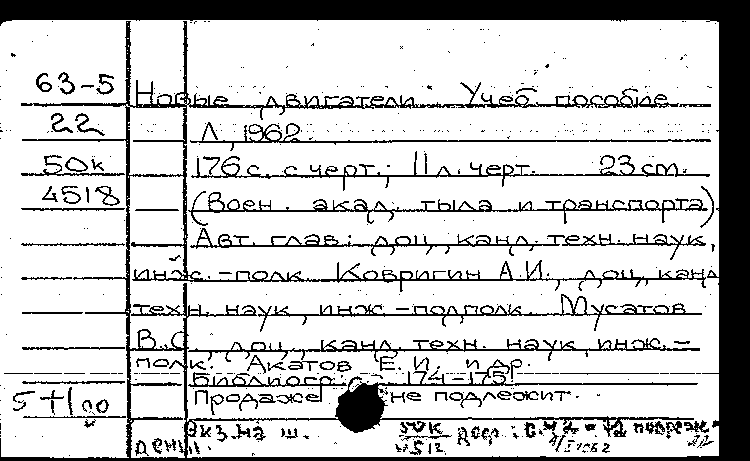 63-5
22
50к
4518
Новые двигатели. Учеб. пособие
Л., 1962.
176 с. с черт.; 11 л. черт. 23 см.
(Воен. акад. тыла и транспорта)
Авт. глав: доц., канд. техн. наук,
инж.-полк. Ковригин А.И., доц., канд.
техн. наук, инж.-подполк. Мусатов
В.С., доц., канд. техн. наук, инж.-
полк. Акатов Е.И. и др.
Библиогр.: с. 174-175.
Продаже не подлежит.
5+1
Экз. на